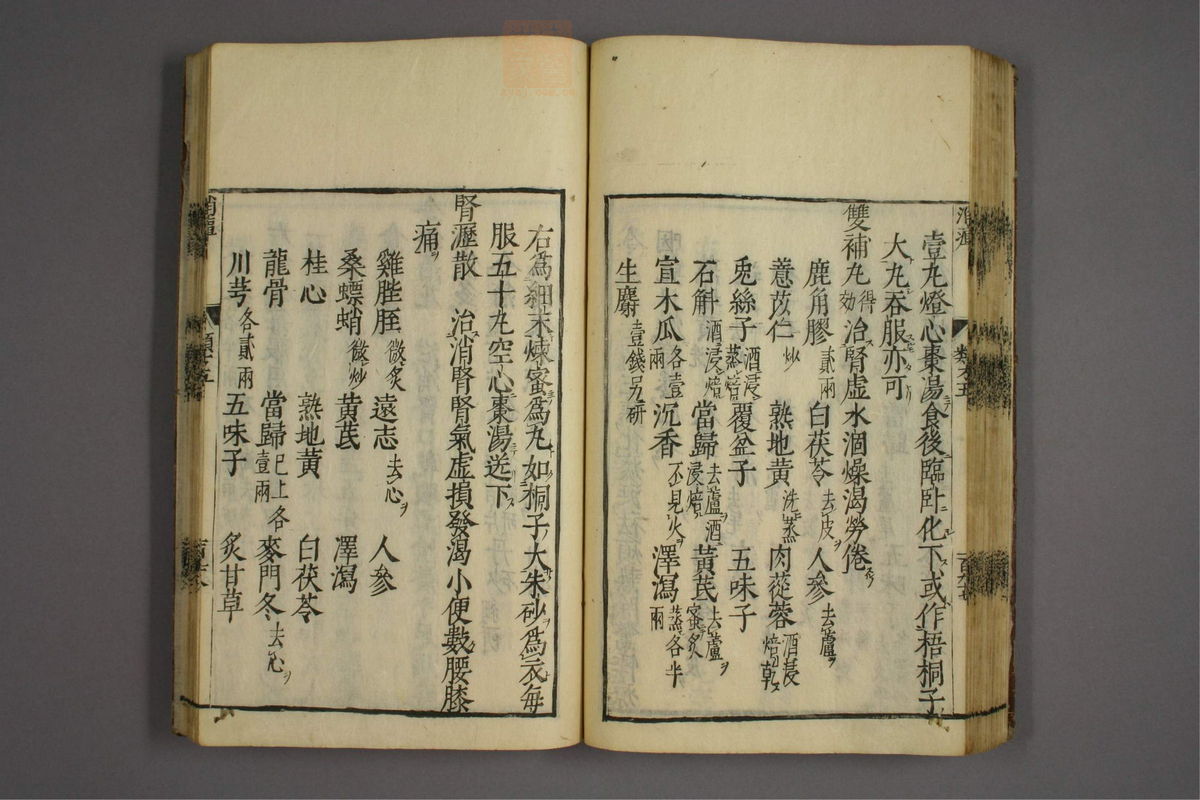 壹丸燈心棗湯食後臨卧化下或作梧桐子
大丸吞服亦可
雙補丸得効治腎虛水涸燥渴勞倦
鹿角膠貳兩 白茯苓去皮ヲ 人參去蘆ヲ
薏苡仁炒 熟地黃洗蒸 肉蓯蓉酒浸焙乾
兎絲子酒浸蒸焙 覆盆子 五味子
石斛酒浸焙 當歸去蘆酒浸焙 黃芪去蘆ヲ蜜炙
宣木瓜各壹兩 沉香不見火 澤瀉蒸各半兩
生麝壹錢另研
右爲細末煉蜜爲丸如桐子大朱砂爲衣每
服五十丸空心棗湯送下
腎瀝散 治消腎腎氣虛損發渴小便數腰膝
痛
雞膍胵微炙 遠志去心ヲ 人參
桑螵蛸微炒 黃芪 澤瀉
桂心 熟地黃 白茯苓
龍骨 當歸已上各壹兩 麥門冬去心ヲ
川芎各貳兩 五味子 炙甘草